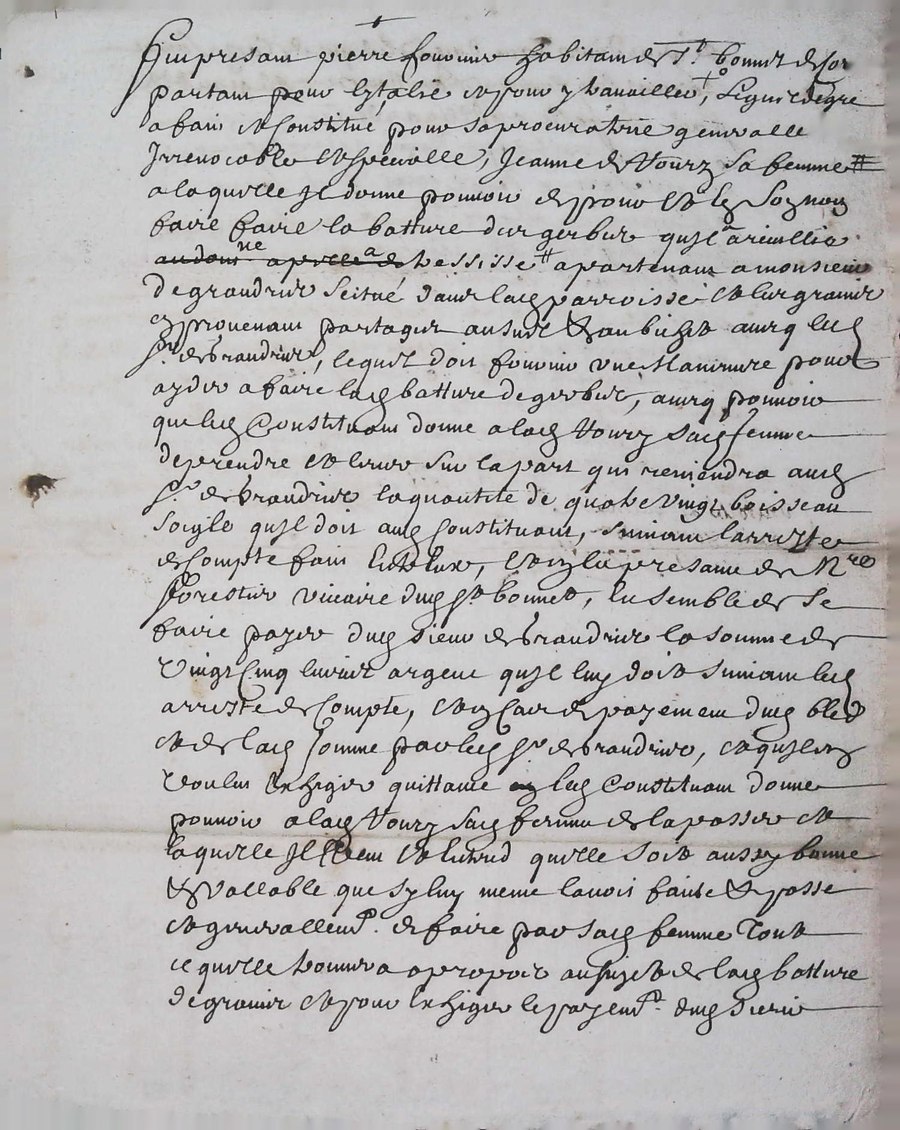 fut presant pierre fournier habitant de St bonnet de for
partant pour lytalie et pour y travailler, lequel de gre
a fait et Constitué pour sa procuratrice generalle
Irrevocable et specialle, Jeanne de Voury sa femme
a laquelle Jl donne pouvoir de pour et en son nom
faire faire la batture des gerbes qujl a recuillie
apartenant a monsieur
De grandrive scitué dans lad parroisse et les graines
en provenant partager au sust et au bichet avecq led
sr de grandrive, lequel doit fournir une Maneuvre pour
ayder a faire lad batture de gerbes, avecq pouvoir
que led Constituant donne a lad Voury sad femme
de prendre et lever sur la part qui reviendra aud
sr de grandrive la quantité de quatre vingt boisseau
soigle qujl doit aud Constituant, suivant larresté
de Compte fait entre eux, et en la presance de Mre
forestier vicaire dud St bonnet, Ensemble de se
faire payer dud sieur de grandrive la somme de
vingt Cinq livres argent qujl luy doit suivant led
arresté de Compte, et en Cas de payement dud bled
et de lad somme par led sr de grandrive, et qujl en
voulut Exhiger quittance led Constituant donne
pouvoir a lad Voury sad femme de la passer et
laquelle Jl veut et entend quelle soit aussy bonne
et vallable que sy luy meme lavoit faite et passé
et generallemt de faire par sad femme Tout
ce quelle trouvera apropos au sujet de lad batture
de graines et pour Exhiger le payemt dud sieur